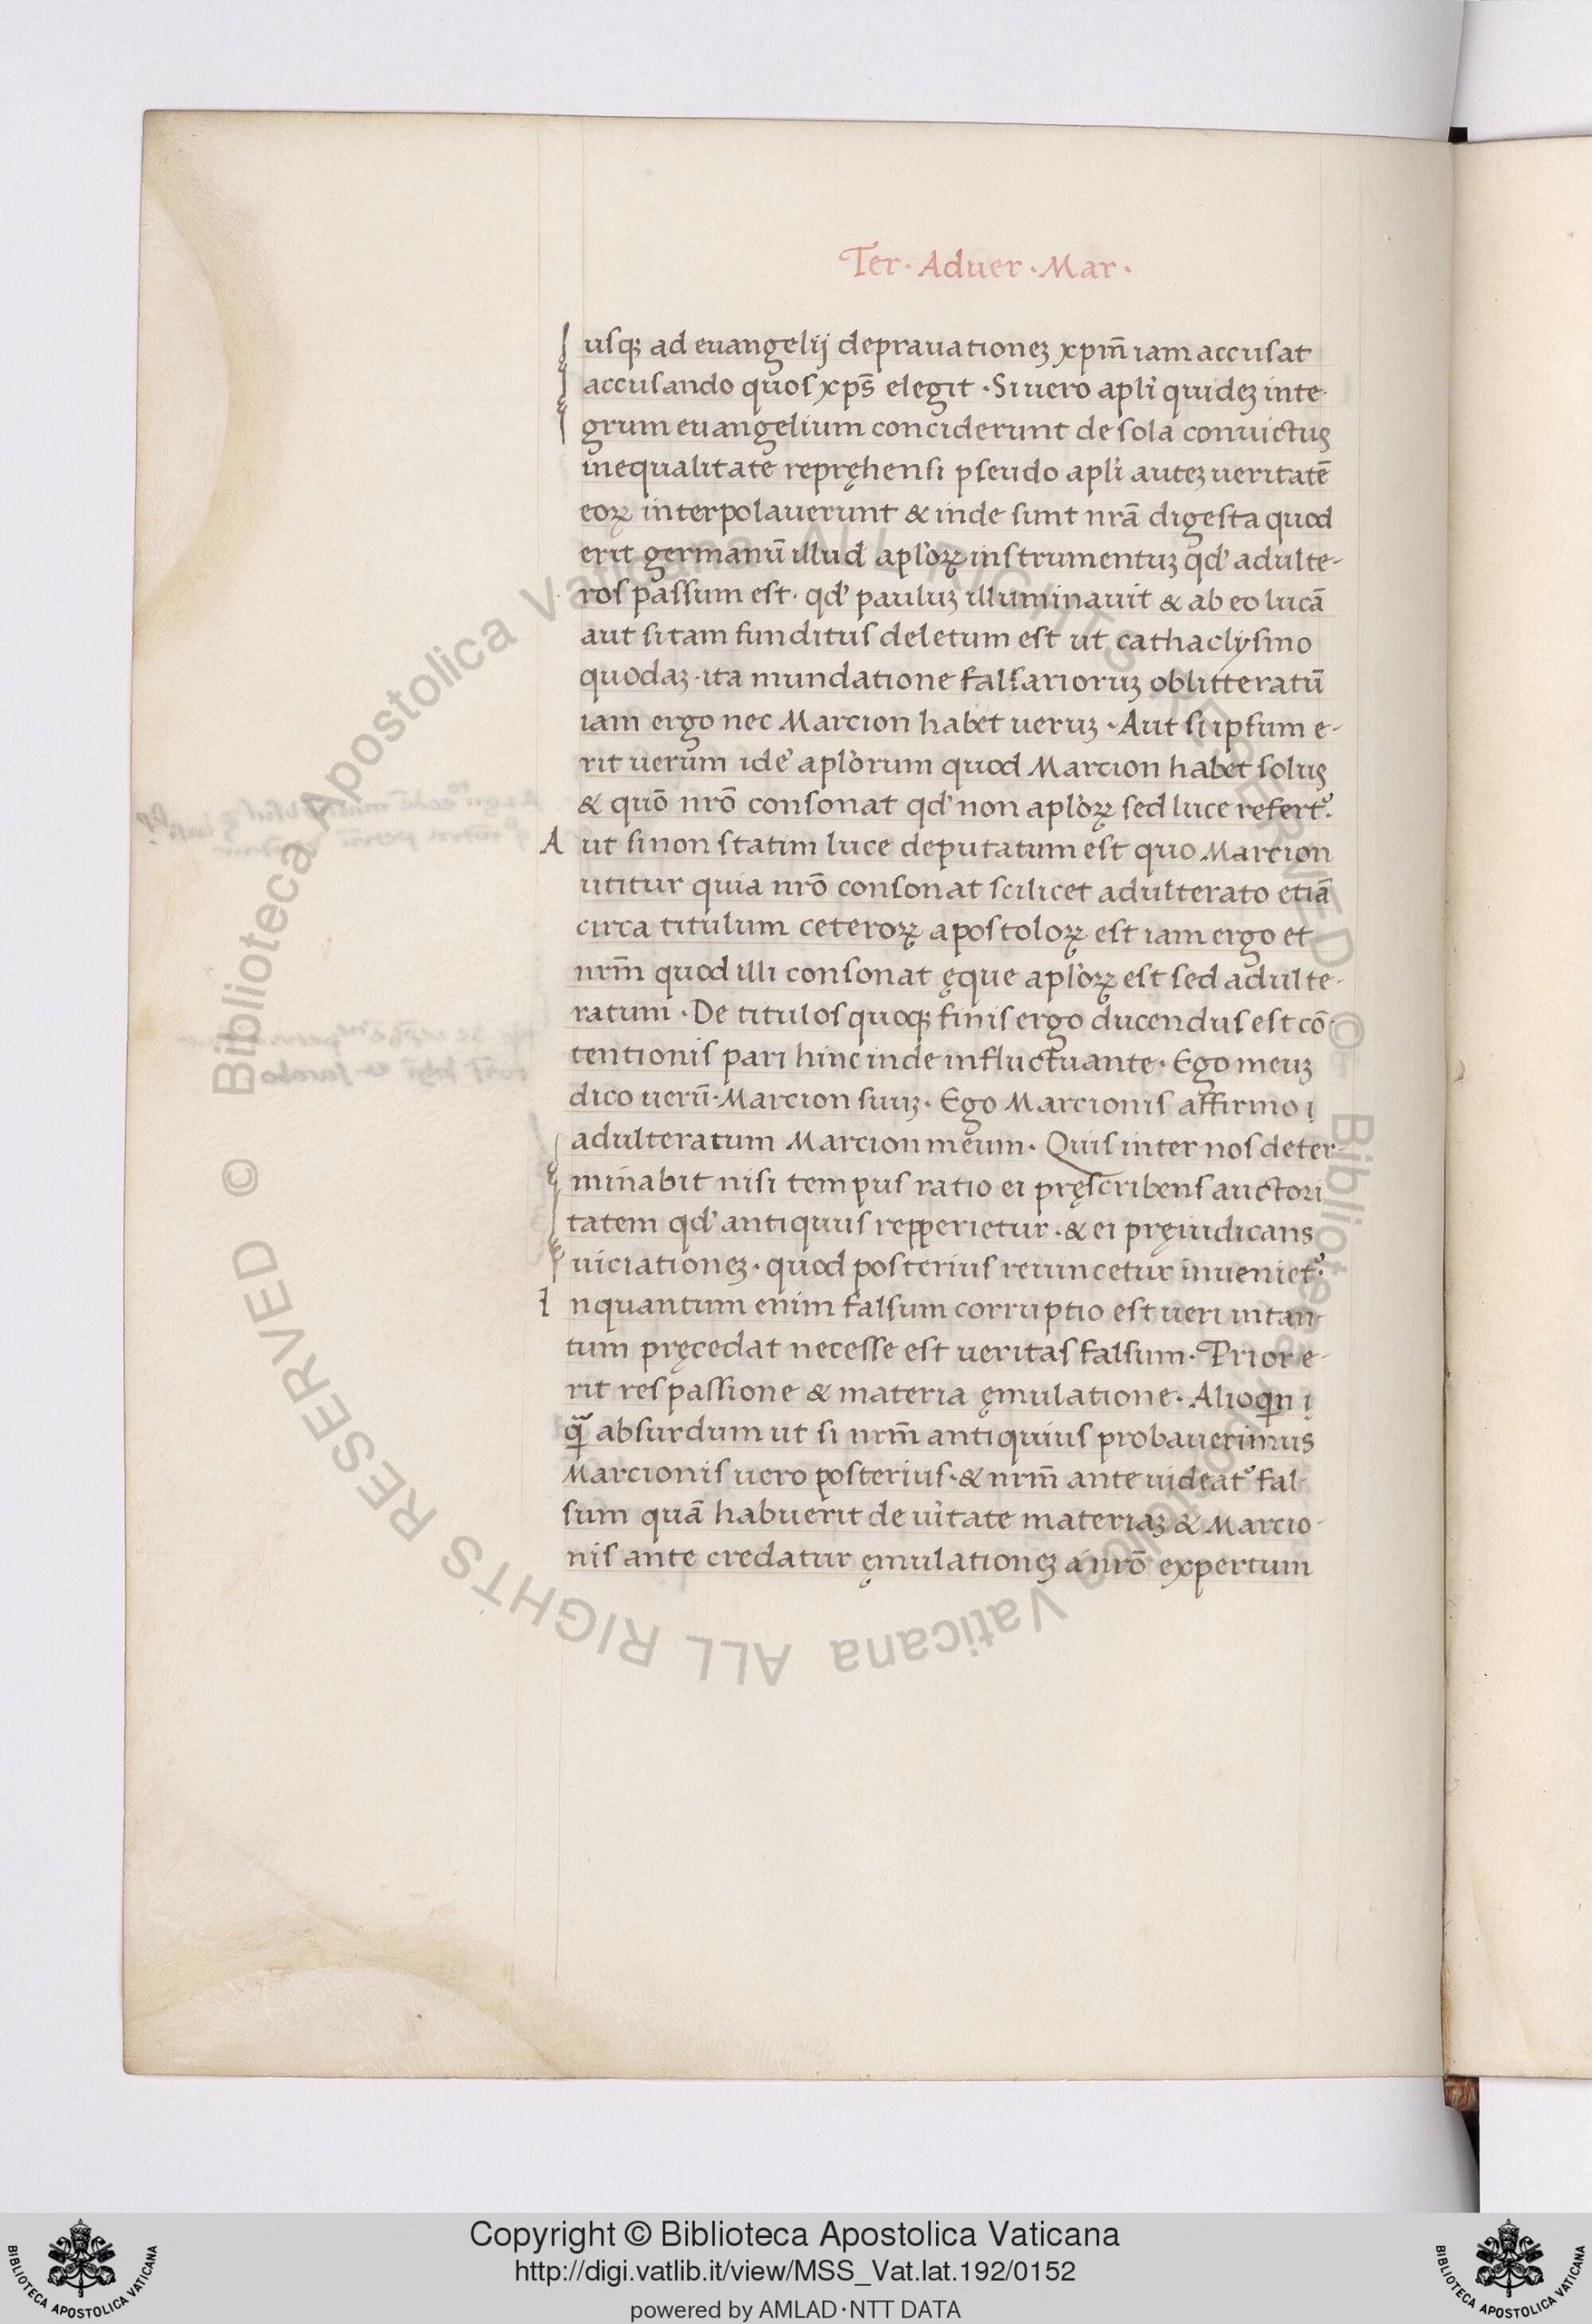 Ter · Aduer · Mar ·
usqꝫ ad euangelij deprauationeꝫ xpm̄ iam accusat
accusando quos xps̄ elegit · Si uero apl̓i quideꝫ inte-
grum euangelium conciderunt de sola conuictuꝫ
inequalitate repręhensi pseudo apl̓i auteꝫ ueritatē
eoꝝ interpolauerunt & inde sunt nrā digesta quod
erit germanū illud apl̓oꝝ instrumentuꝫ qd̓ adulte-
ros passum est · qd̓ pauluꝫ illuminauit & ab eo lucā
aut si tam funditus deletum est ut cathaclysmo
quodaꝫ · ita mundatione falsarioruꝫ oblitteratū
iam ergo nec Marcion habet ueruꝫ · Aut si ipsum e-
rit uerum ide̓ apl̓orum quod Marcion habet soluꝫ
& quō nrō consonat qd̓ non apl̓oꝝ sed luce refert᷒.
Aut si non statim luce deputatum est quo Marcion
utitur quia nrō consonat scilicet adulterato etiā
circa titulum ceteroꝝ apostoloꝝ est iam ergo et
nrm̄ quod illi consonat ęque apl̓oꝝ est sed adulte-
ratum · De titulos quoqꝫ finis ergo ducendus est cō-
tentionis pari hinc inde influctuante · Ego meuꝫ
dico uerū · Marcion suuꝫ · Ego Marcionis affirmo ı
adulteratum Marcion meum · Quis inter nos deter-
minabit nisi tempus ratio ei pręscribens auctori
tatem qd̓ antiquus repperietur · & ei pręiudicans
uiciationeꝫ · quod posterius reuincetur inueniet᷒.
Inquantum enim falsum corruptio est ueri intan-
tum pręcedat necesse est ueritas falsum · Prior e-
rit res passione & materia ęmulatione · Alioqn ı
qᷓ absurdum ut si nrm̄ antiquius probauerimus
Marcionis uero posterius · & nrm̄ ante uideat᷒ fal-
sum quā habuerit de ui̓tate materiaꝫ & Marcio-
nis ante credatur ęmulationeꝫ a nrō expertum
© Biblioteca Apostolica Vaticana ALL RIGHTS RESERVED
© Biblioteca Apostolica Vaticana ALL RIGHTS RESERVED
Copyright © Biblioteca Apostolica Vaticana
http://digi.vatlib.it/view/MSS_Vat.lat.192/0152
powered by AMLAD·NTT DATA
BIBLIOTECA APOSTOLICA VATICANA
BIBLIOTECA APOSTOLICA VATICANA